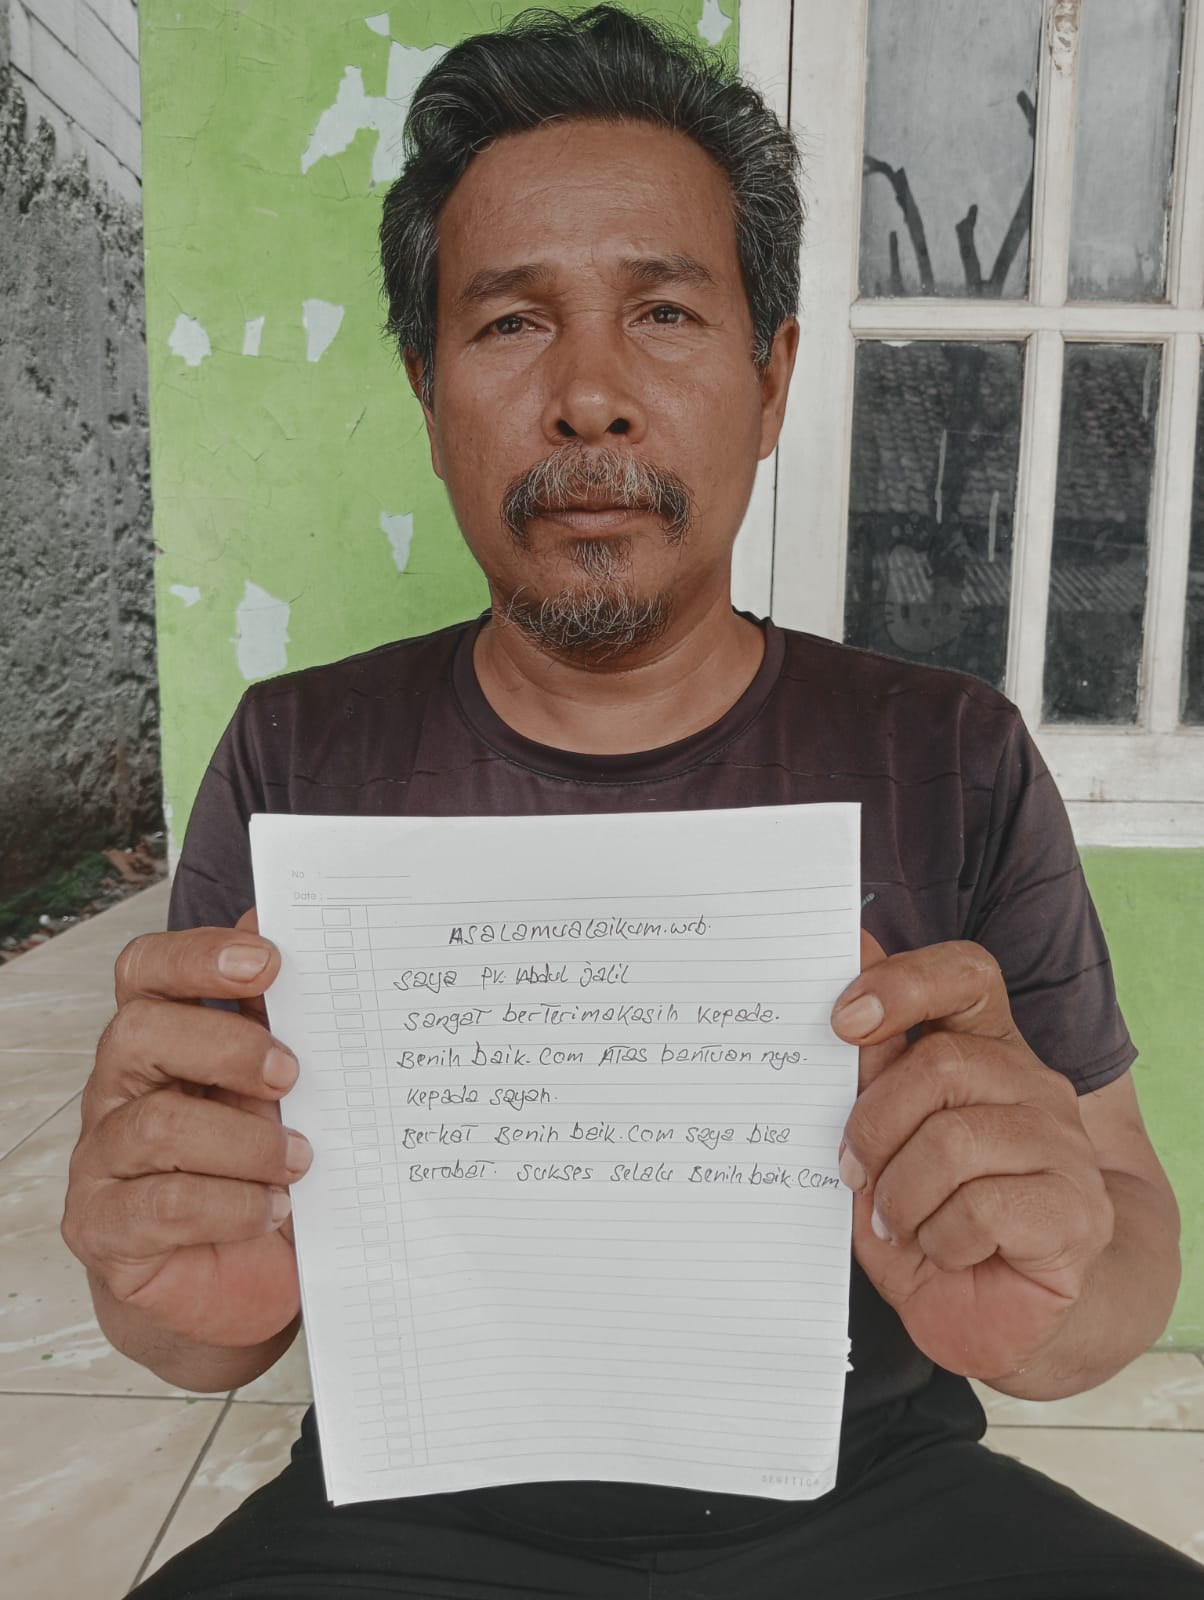 No :
Date :
Asalamualaikum.wrb.
saya pk. Abdul jalil
sangat berterimakasih kepada.
Benih baik.com Atas bantuan nya.
kepada sayah.
Berkat Benih baik.com saya bisa
Berobat. sukses selalu Benih baik.com